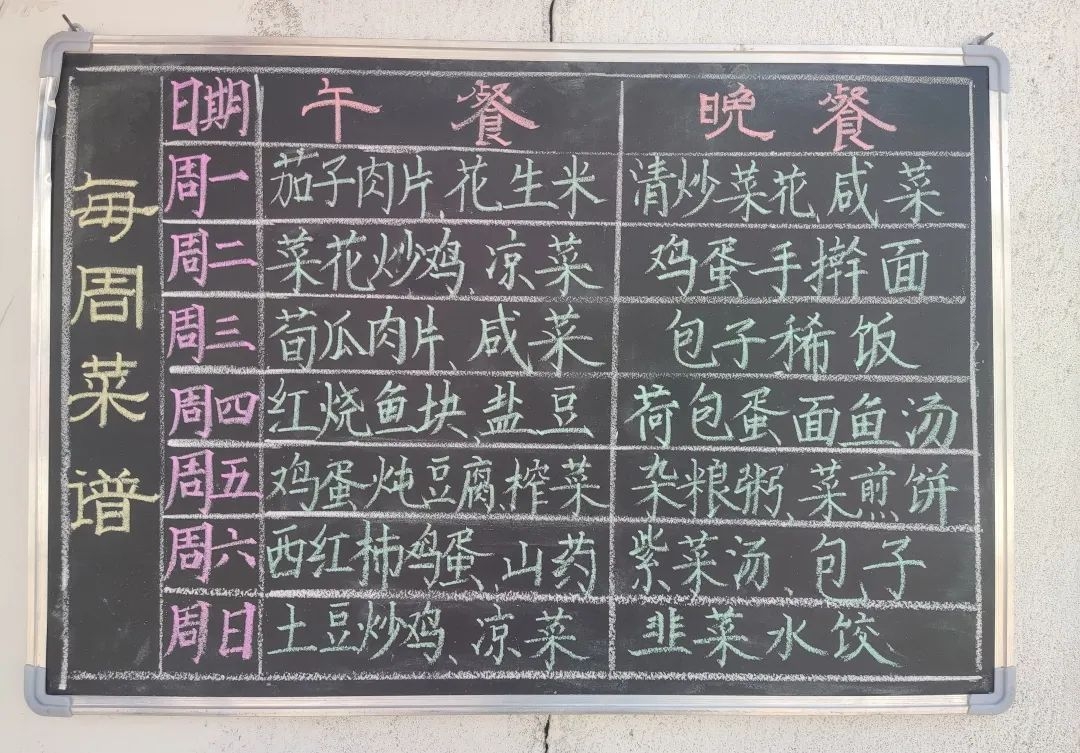 每周菜谱
日期 午餐 晚餐
周一 茄子肉片、花生米 清炒菜花、咸菜
周二 菜花炒鸡、凉菜 鸡蛋手擀面
周三 荀瓜肉片、咸菜 包子稀饭
周四 红烧鱼块、盐豆 荷包蛋面鱼汤
周五 鸡蛋炖豆腐、榨菜 杂粮粥、菜煎饼
周六 西红柿鸡蛋、山药 紫菜汤、包子
周日 土豆炒鸡、凉菜 韭菜水饺